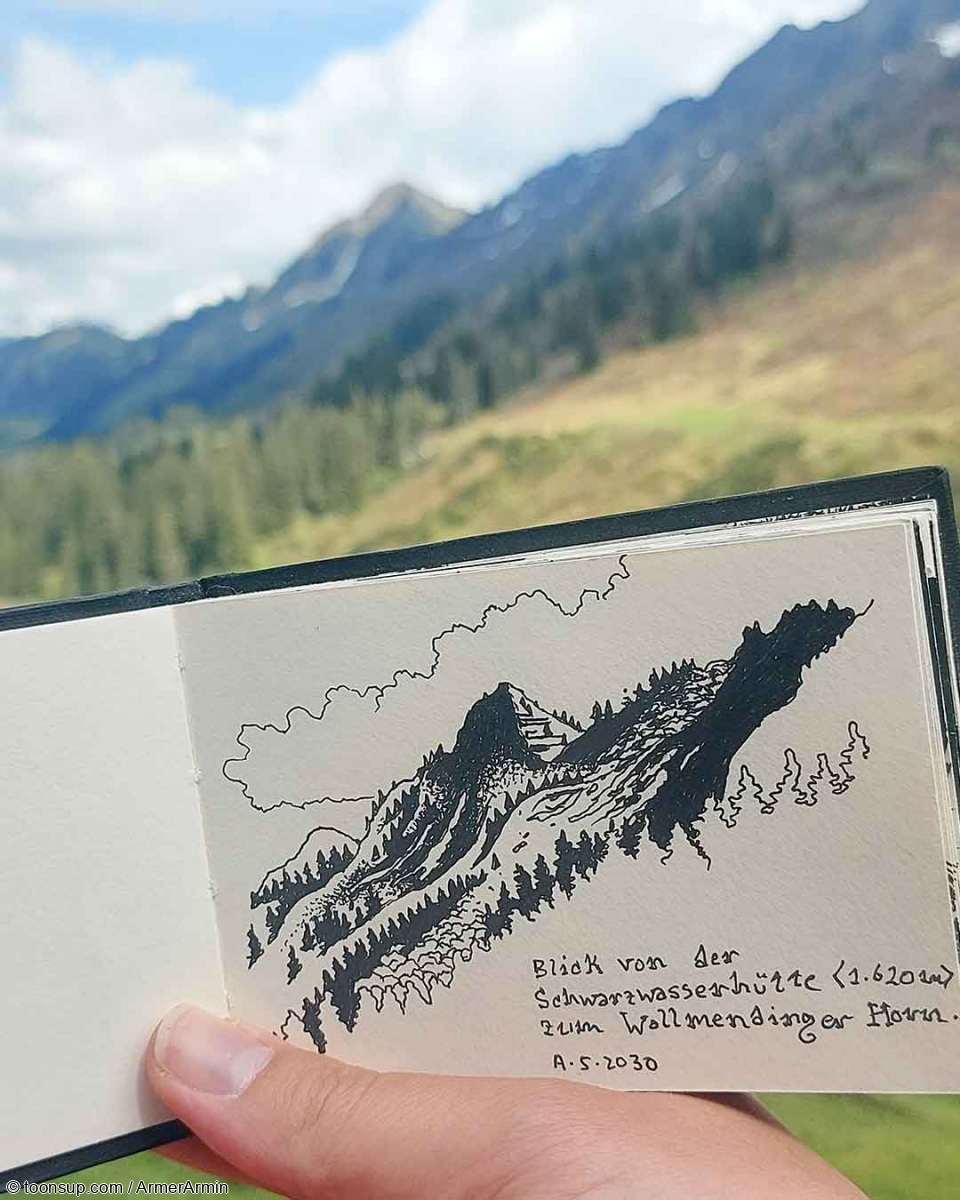 Blick von der
Schwarzwasserhütte (1.620m)
zum Wollmendinger Horn.
A.5.2030
© toonsup.com / ArmerArmin